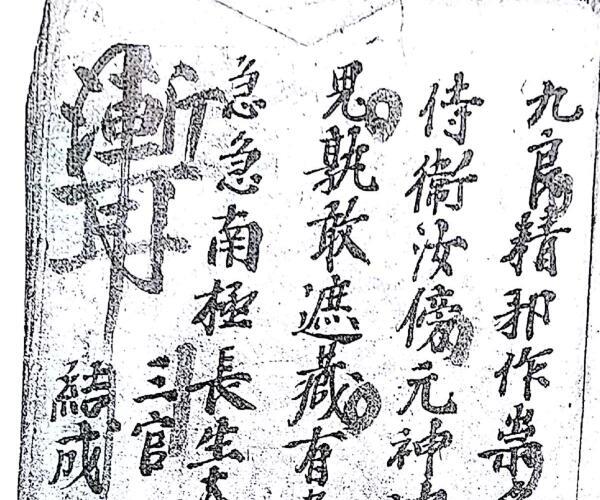 九良精邪作祟
侍衛汝傍元神
鬼孰敢遮藏有
急急南極長生
三官
結成